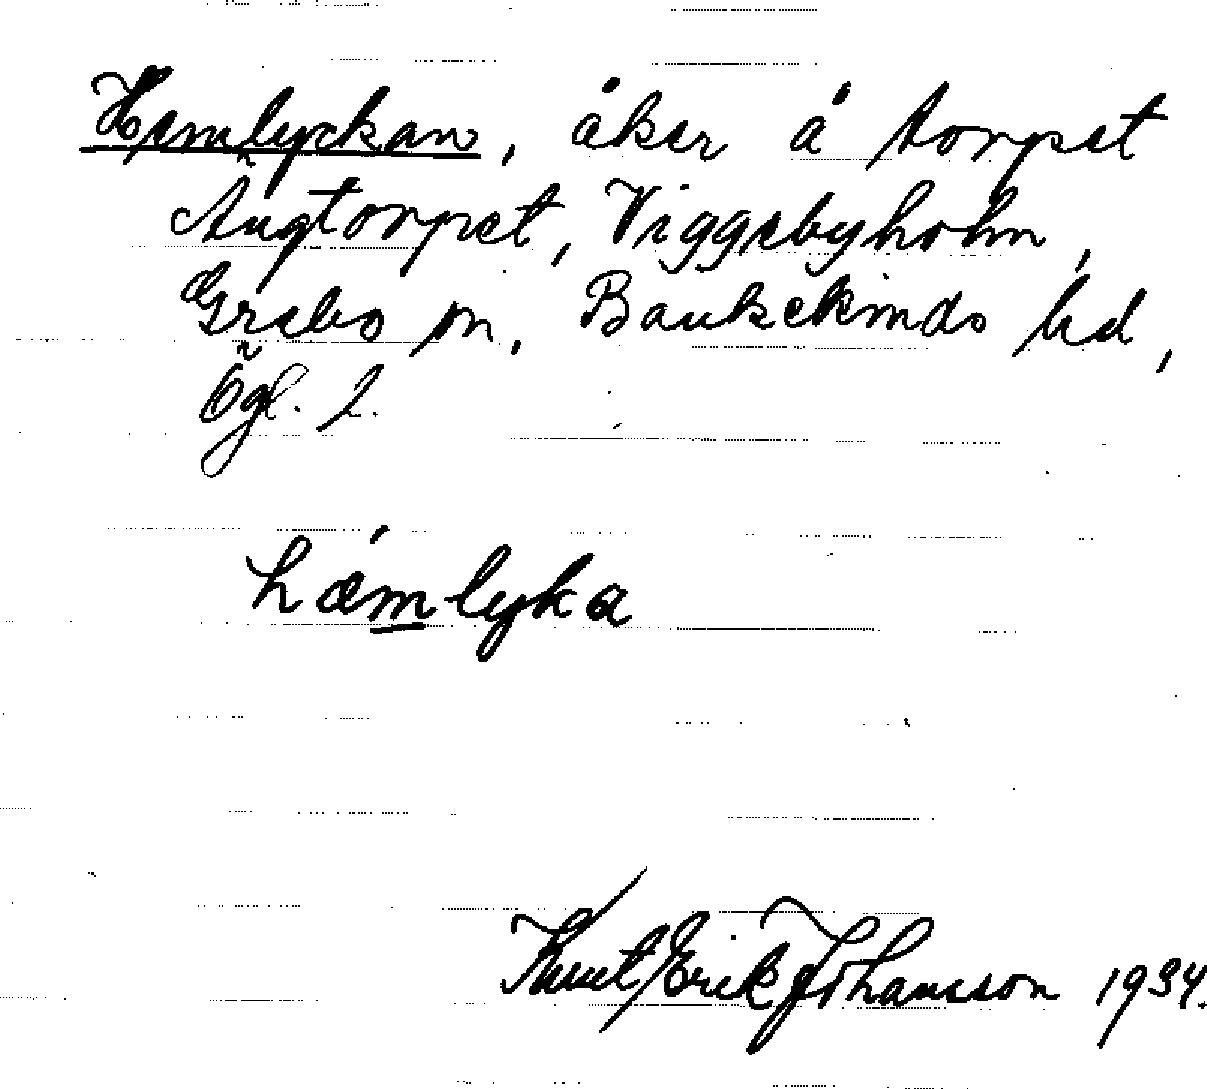 Hemlyckan, åker å torpet
Ängtorpet, Viggebyholm,
Grebo sn, Bankekinds hd,
Ögl. L.
hæmlyka
Knut Erik Johansson 1934.